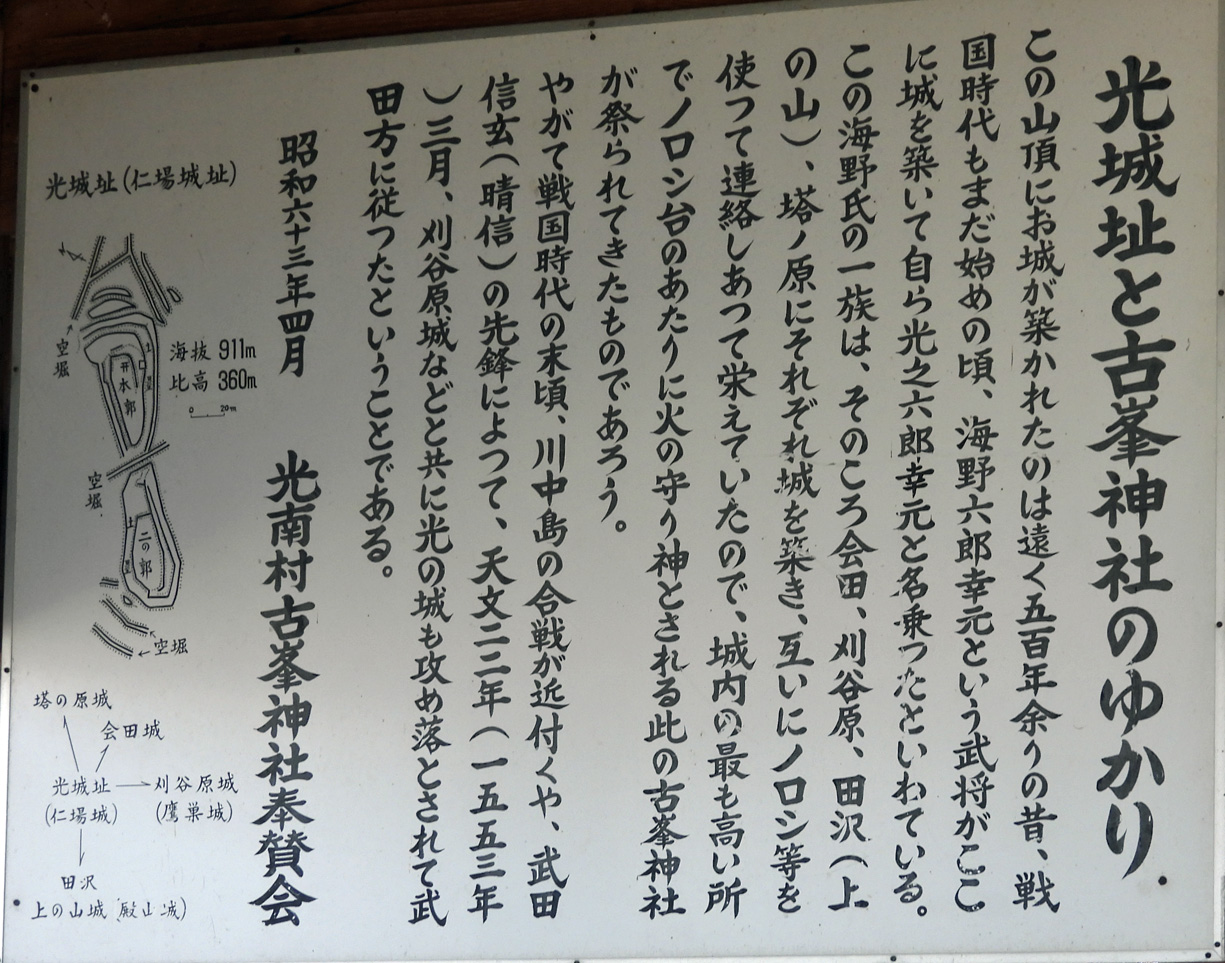 光城址と古峯神社のゆかり
この山頂にお城が築かれたのは遠く五百年余りの昔、戦
国時代もまだ始めの頃、海野六郎幸元という武将がここ
に城を築いて自ら光之六郎幸元と名乗つたといわている。
この海野氏の一族は、そのころ会田、刈谷原、田沢(上
の山)、塔ノ原にそれぞれ城を築き、互いにノロシ等を
使つて連絡しあつて栄えていたので、城内の最も高い所
でノロシ台のあたりに火の守り神とされる此の古峯神社
が祭られてきたものであろう。
やがて戦国時代の末頃、川中島の合戦が近付くや、武田
信玄(晴信)の先鋒によつて、天文二二年(一五五三年
)三月、刈谷原城などと共に光の城も攻め落とされて武
田方に従つたということである。
昭和六十三年四月
光南村古峯神社奉賛会
光城址(仁場城址)
空堀
海抜 911m
比高 360m
0 20m
本郭
空堀
二の郭
空堀
塔の原城
会田城
光城址
(仁場城)
刈谷原城
(鷹巣城)
田沢
上の山城(殿山城)